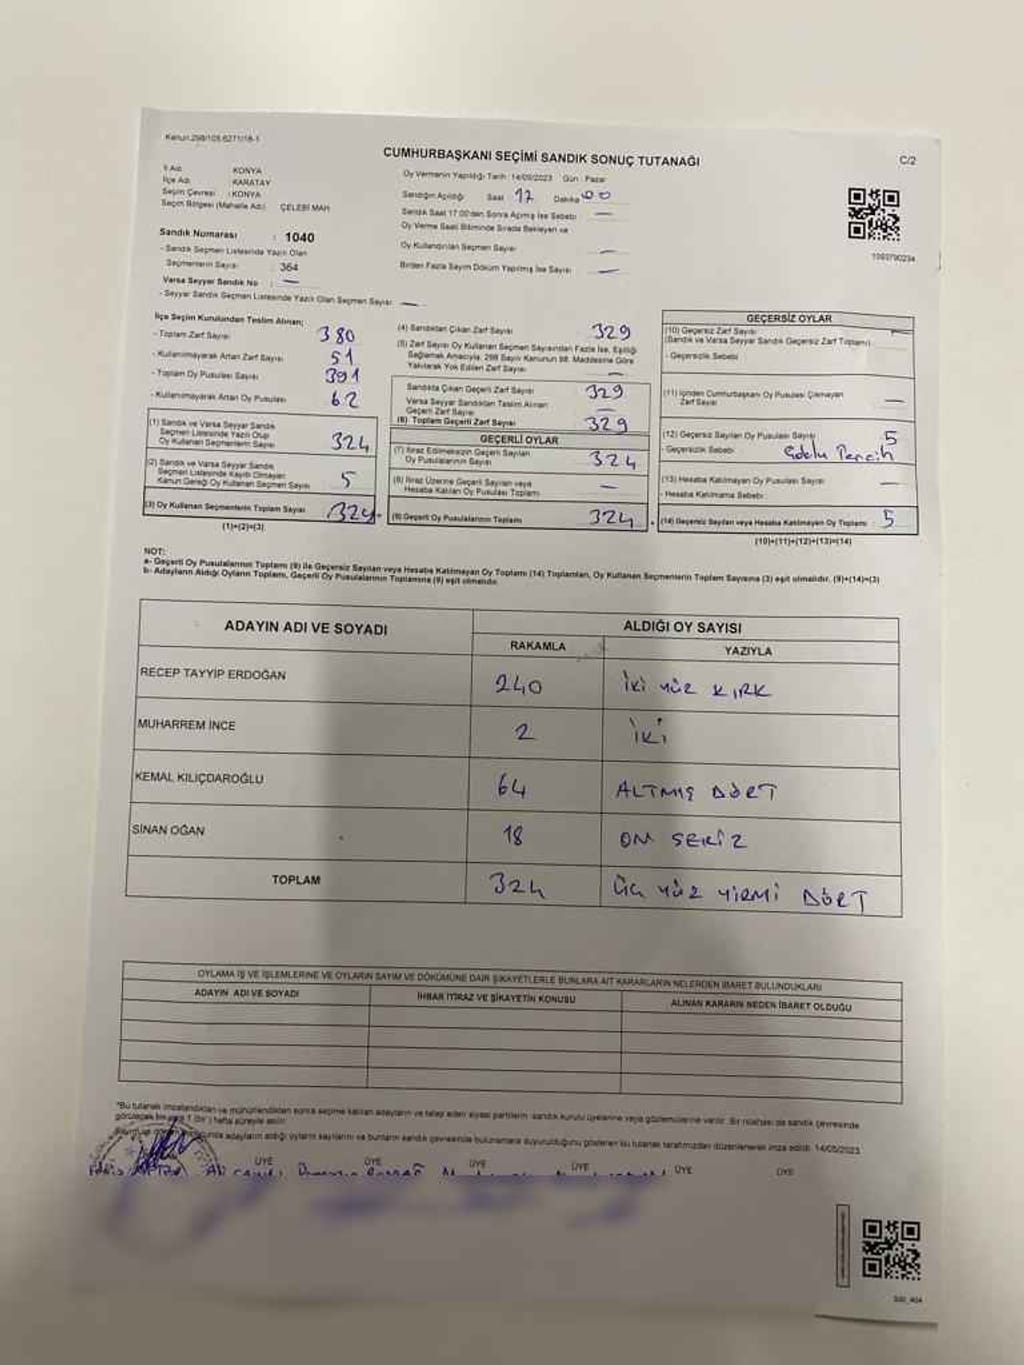 Kanun 298/105,6271/18-1
CUMHURBAŞKANI SEÇİMİ SANDIK SONUÇ TUTANAĞI
C/2
İl Adı : KONYA
İlçe Adı : KARATAY
Seçim Çevresi : KONYA
Seçim Bölgesi (Mahalle Adı) : ÇELEBİ MAH
Oy Vermenin Yapıldığı Tarih: 14/05/2023 Gün : Pazar
Sandığın Açıldığı Saat 17 Dakika 00
Sandık Saat 17.00'den Sonra Açılmış İse Sebebi : —
Oy Verme Saati Bitiminde Sırada Bekleyen ve
Oy Kullandırılan Seçmen Sayısı —
Birden Fazla Sayım Döküm Yapılmış İse Sayısı —
1093790234
Sandık Numarası : 1040
- Sandık Seçmen Listesinde Yazılı Olan
Seçmenlerin Sayısı : 364
Varsa Seyyar Sandık No : —
- Seyyar Sandık Seçmen Listesinde Yazılı Olan Seçmen Sayısı : —
İlçe Seçim Kurulundan Teslim Alınan;
- Toplam Zarf Sayısı 380
- Kullanılmayarak Artan Zarf Sayısı 51
- Toplam Oy Pusulası Sayısı 391
- Kullanılmayarak Artan Oy Pusulası 62
(1) Sandık ve Varsa Seyyar Sandık
Seçmen Listesinde Yazılı Olup
Oy Kullanan Seçmenlerin Sayısı 324
(2) Sandık ve Varsa Seyyar Sandık
Seçmen Listesinde Kayıtlı Olmayan
Kanun Gereği Oy Kullanan Seçmen Sayısı 5
(3) Oy Kullanan Seçmenlerin Toplam Sayısı 329
(1)+(2)=(3)
(4) Sandıktan Çıkan Zarf Sayısı 329
(5) Zarf Sayısı Oy Kullanan Seçmen Sayısından Fazla İse, Eşitliği
Sağlamak Amacıyla, 298 Sayılı Kanunun 98. Maddesine Göre
Yakılarak Yok Edilen Zarf Sayısı —
Sandıkta Çıkan Geçerli Zarf Sayısı 329
Varsa Seyyar Sandıktan Teslim Alınan
Geçerli Zarf Sayısı —
(6) Toplam Geçerli Zarf Sayısı 329
GEÇERLİ OYLAR
(7) İtiraz Edilmeksizin Geçerli Sayılan
Oy Pusulalarının Sayısı 324
(8) İtiraz Üzerine Geçerli Sayılan veya
Hesaba Katılan Oy Pusulası Toplamı —
(9) Geçerli Oy Pusulalarının Toplamı 324
GEÇERSİZ OYLAR
(10) Geçersiz Zarf Sayısı —
(Sandık ve Varsa Seyyar Sandık Geçersiz Zarf Toplamı)
- Geçersizlik Sebebi :
(11) İçinden Cumhurbaşkanı Oy Pusulası Çıkmayan
Zarf Sayısı —
(12) Geçersiz Sayılan Oy Pusulası Sayısı 5
- Geçersizlik Sebebi :
(13) Hesaba Katılmayan Oy Pusulası Sayısı —
- Hesaba Katılmama Sebebi :
(14) Geçersiz Sayılan veya Hesaba Katılmayan Oy Toplamı 5
(10)+(11)+(12)+(13)=(14)
NOT:
a- Geçerli Oy Pusulalarının Toplamı (9) ile Geçersiz Sayılan veya Hesaba Katılmayan Oy Toplamı (14) Toplamları, Oy Kullanan Seçmenlerin Toplam Sayısına (3) eşit olmalıdır. (9)+(14)=(3)
b- Adayların Aldığı Oyların Toplamı, Geçerli Oy Pusulalarının Toplamına (9) eşit olmalıdır.
ADAYIN ADI VE SOYADI
ALDIĞI OY SAYISI
RAKAMLA
YAZIYLA
RECEP TAYYİP ERDOĞAN 240 İKİ YÜZ KIRK
MUHARREM İNCE 2 İKİ
KEMAL KILIÇDAROĞLU 64 ALTMIŞ DÖRT
SİNAN OĞAN 18 ON SEKİZ
TOPLAM 324 ÜÇ YÜZ YİRMİ DÖRT
OYLAMA İŞ VE İŞLEMLERİNE VE OYLARIN SAYIM VE DÖKÜMÜNE DAİR ŞİKAYETLERLE BUNLARA AİT KARARLARIN NELERDEN İBARET BULUNDUKLARI
ADAYIN ADI VE SOYADI
İHBAR İTİRAZ VE ŞİKAYETİN KONUSU
ALINAN KARARIN NEDEN İBARET OLDUĞU
*Bu tutanak imzalandıktan ve mühürlendikten sonra seçime katılan adayların ve talep eden siyasi partilerin sandık kurulu üyelerine veya gözlemcilerine verilir. Bir nüshası da sandık çevresinde
görülecek bir yere 1 (bir) hafta süreyle asılır.
adayların aldığı oyların sayılarını ve bunların sandık çevresinde bulunanlara duyurulduğunu gösteren bu tutanak tarafımızdan düzenlenerek imza edildi. 14/05/2023
ÜYE ÜYE ÜYE ÜYE ÜYE ÜYE